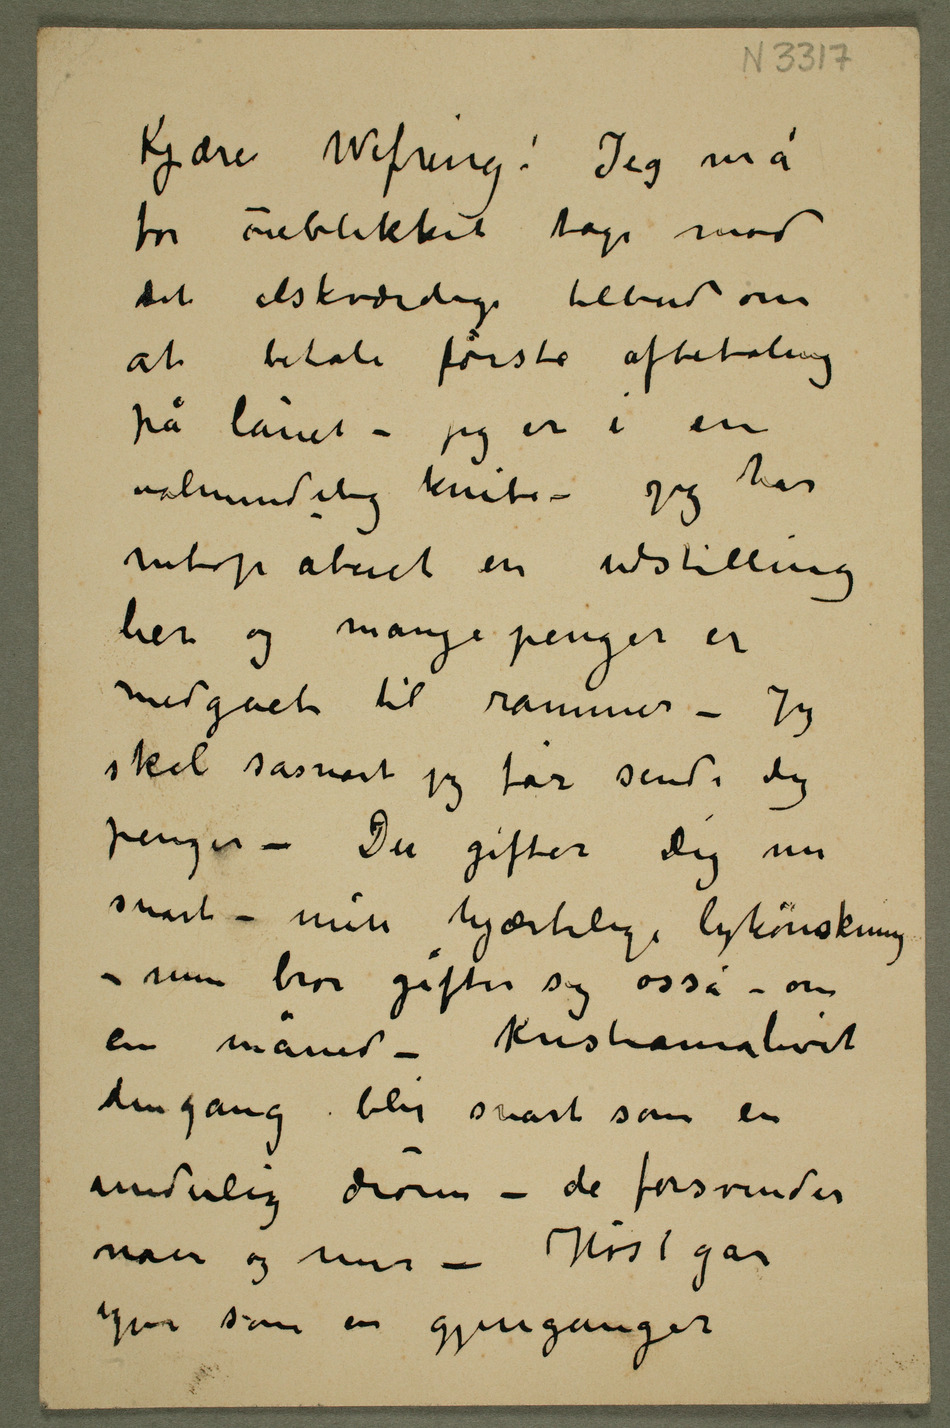 N 3317
Kjære Wefring! Jeg må
for öieblikket tage mod
det elskværdige tilbud om
at betale første afbetaling
på lånet – jeg er i en
ualmindelig knibe – jeg har
netop åbnet en udstilling
her og mange penger er
medgået til rammer – Jeg
skal såsnart jeg får sende dig
penger – Du gifter dig nu
snart – min hjærtelige lykönskning
– min bror gifter sig osså – om
en måned – Kristianialivet
dengang blir snart som en
underlig dröm – de forsvinder
mer og mer – Høst går
igjen som en gjenganger